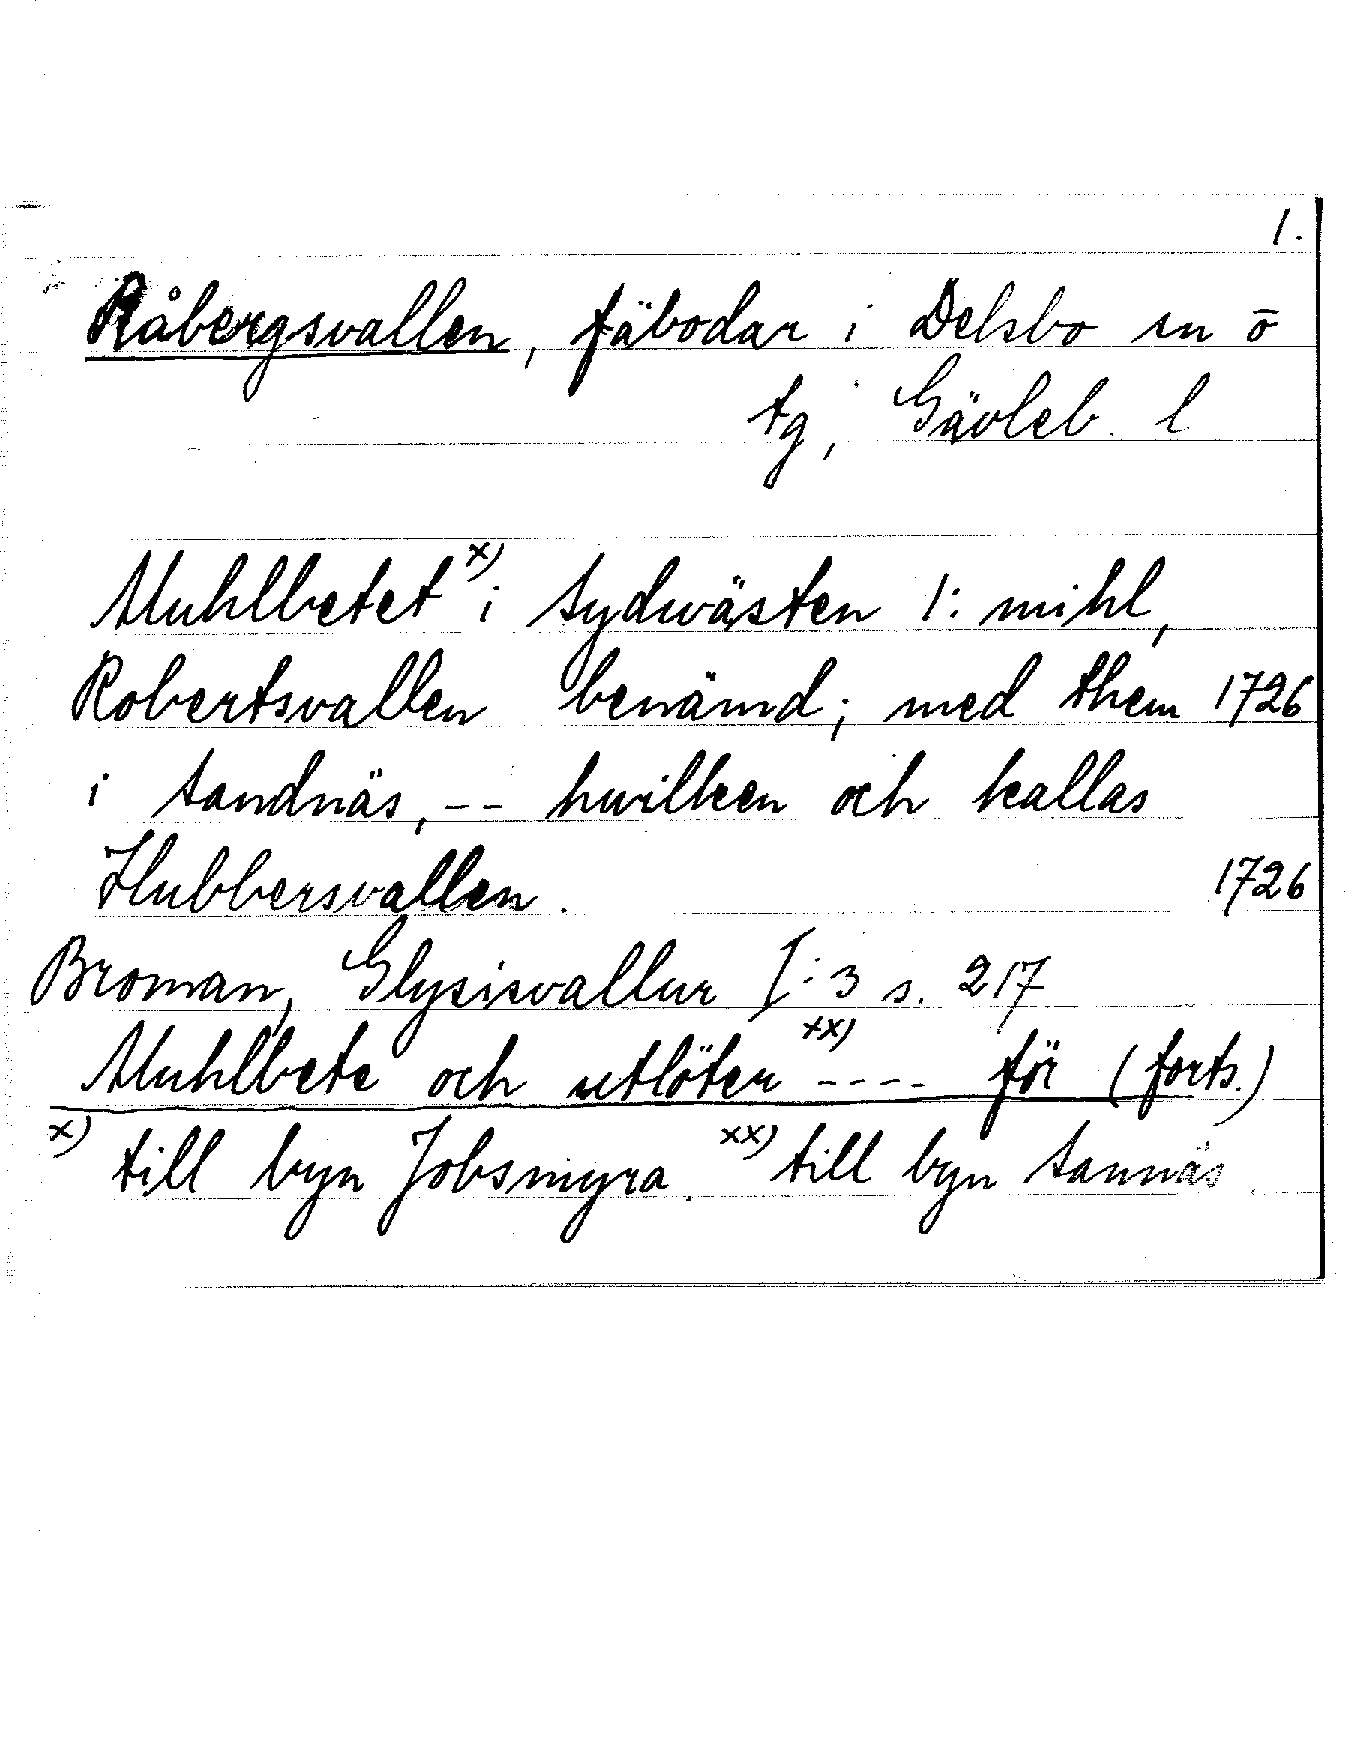 1.
Råbergsvallen, fäbodar i Delsbo sn ö
tg, Gävleb. l
Muhlbetet x) i sydwästen 1: mihl,
Robertsvallen benämd; med them 1726
i Sandnäs, -- hwilken och kallas
Hubbersvallen. 1726
Broman, Glysisvallur I:3 s. 217
Muhlbete och utlöter xx) ---- för (forts.)
x) till byn Jobsmyra. xx) till byn Sannäs